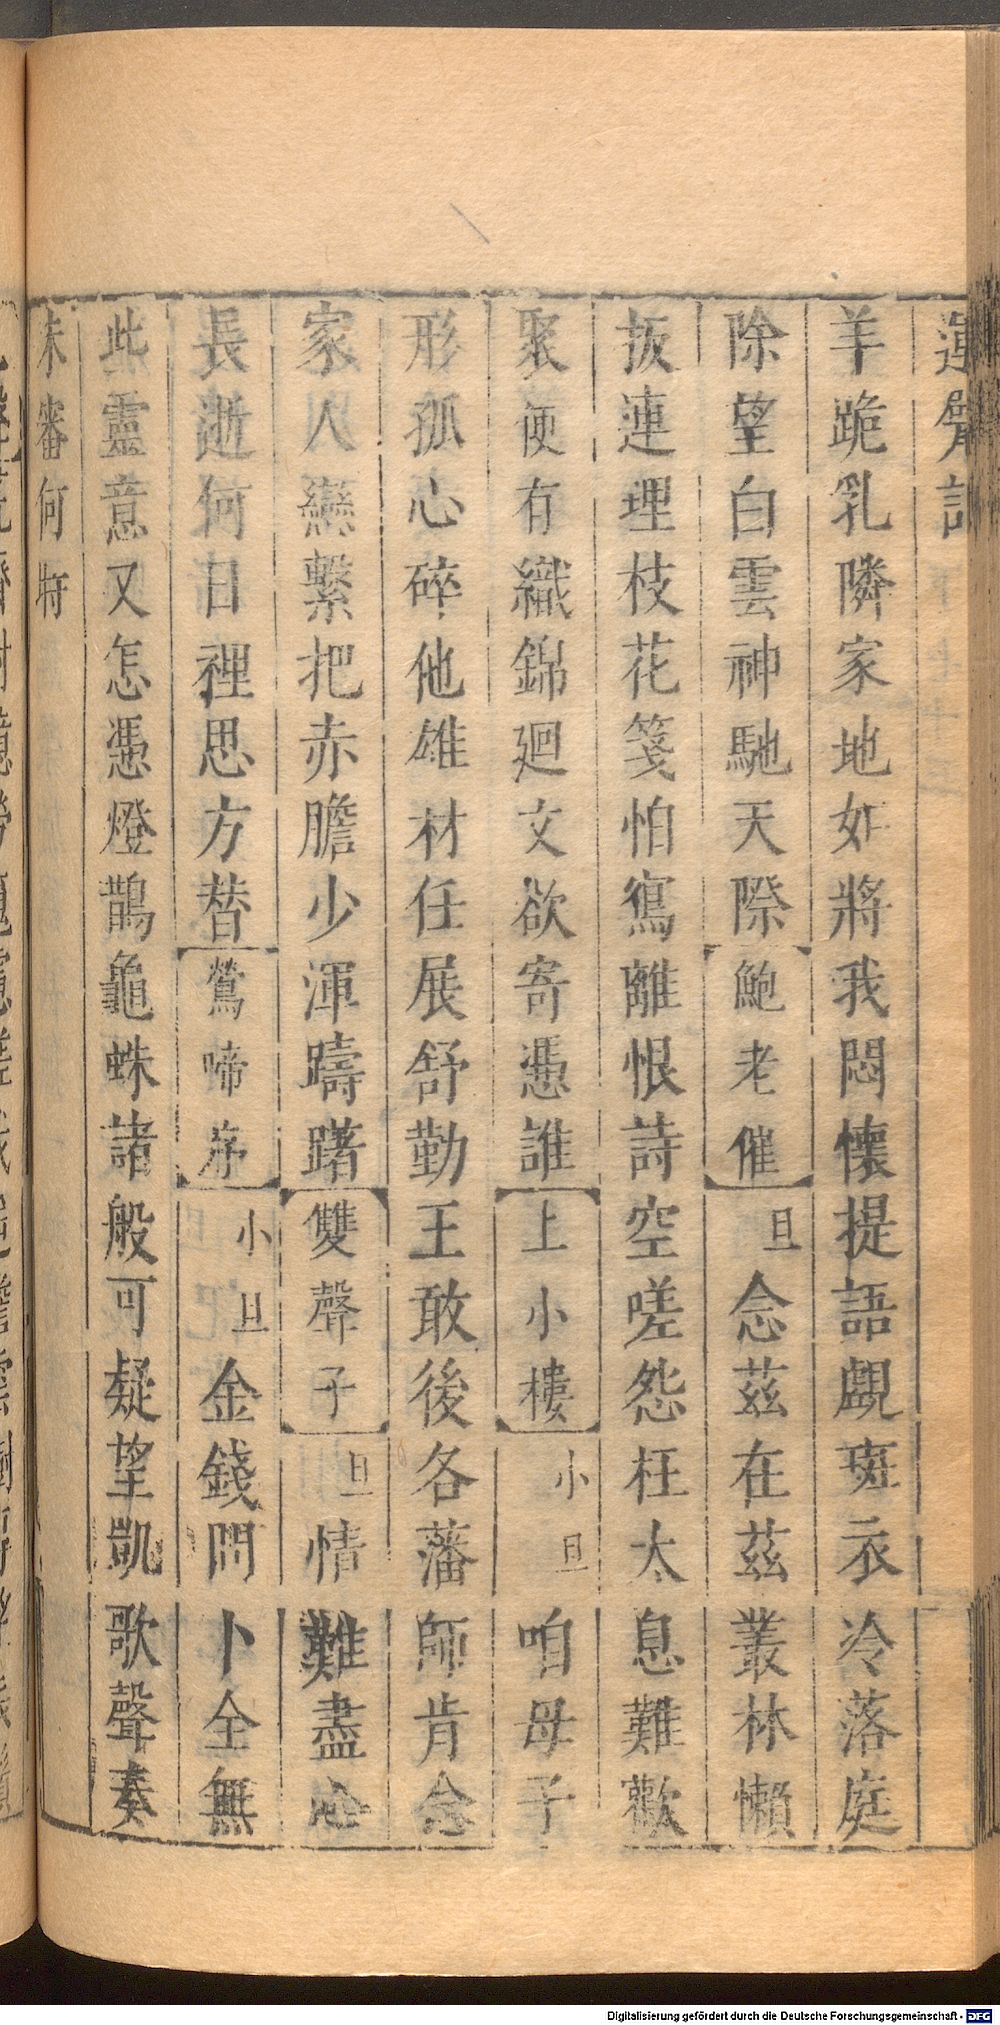 運甓記
羊跪乳隣家地如將我悶懷提語覷斑衣冷落庭
除望白雲神馳天際【鮑老催】旦念茲在茲叢林懶
扳連理枝花箋怕寫離恨詩空嗟怨枉太息難歡
聚便有織錦廻文欲寄憑誰【上小樓】小旦咱母子
形孤心碎他雄材任展舒勤王敢後各藩師肯念
家人戀繫把赤膽少渾躊躇【雙聲子】旦情難盡心
長逝何日裡思方替【鶯啼序】小旦金錢問卜全無
此靈意又怎憑燈鵲龜蛛諸般可疑望凱歌聲奏
未審何時
Digitalisierung gefördert durch die Deutsche Forschungsgemeinschaft - DFG